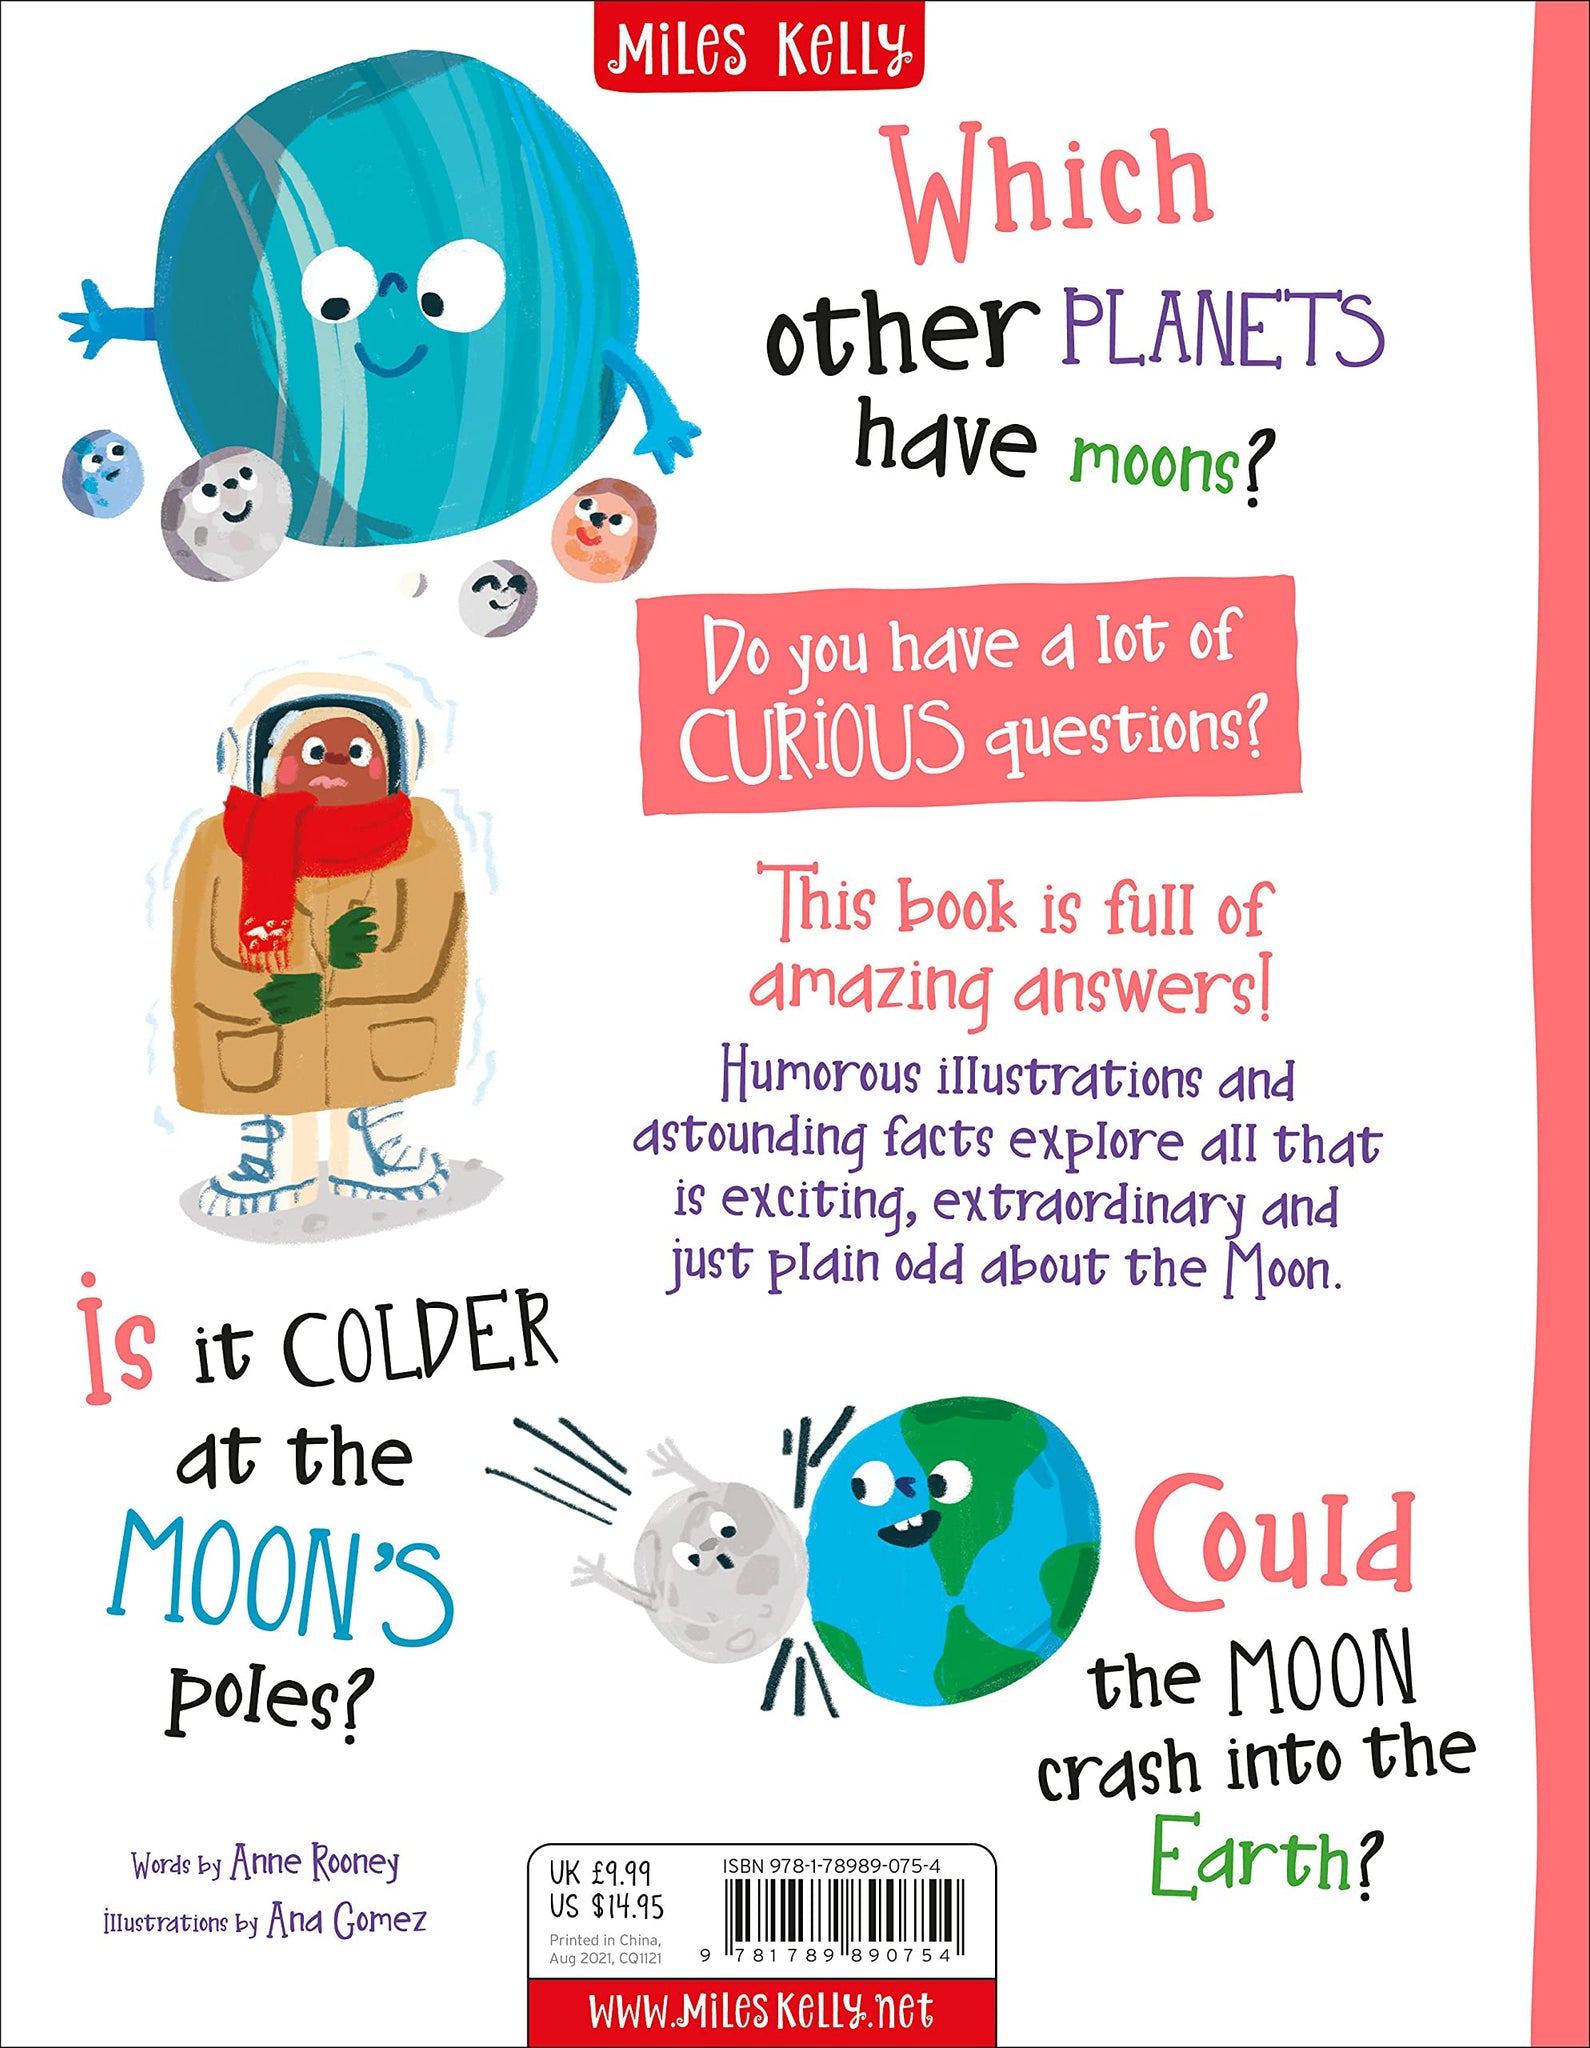 Miles Kelly
Which
other PLANETS
have moons?
Do you have a lot of
CURiOUS questions?
This book is full of
amazing answers!
Humorous illustrations and
astounding facts explore all that
is exciting, extraordinary and
just plain odd about the Moon.
Is it COLDER
at the
MOON'S
poles?
Could
the MOON
crash into the
Earth?
Words by Anne Rooney
illustrations by Ana Gomez
UK £9.99
US $14.95
Printed in China,
Aug 2021, CQ1121
ISBN 978-1-78989-075-4
9 781789 890754
www.MilesKelly.net